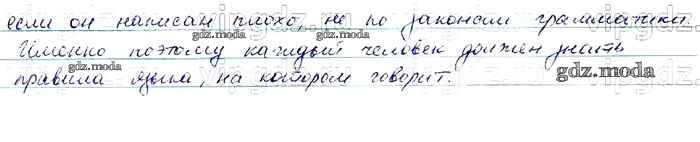 если он написан плохо, не по законам грамматики.
Именно поэтому каждый человек должен знать
gdz.moda
правила языка, на котором говорит.
gdz.moda
gdz.moda